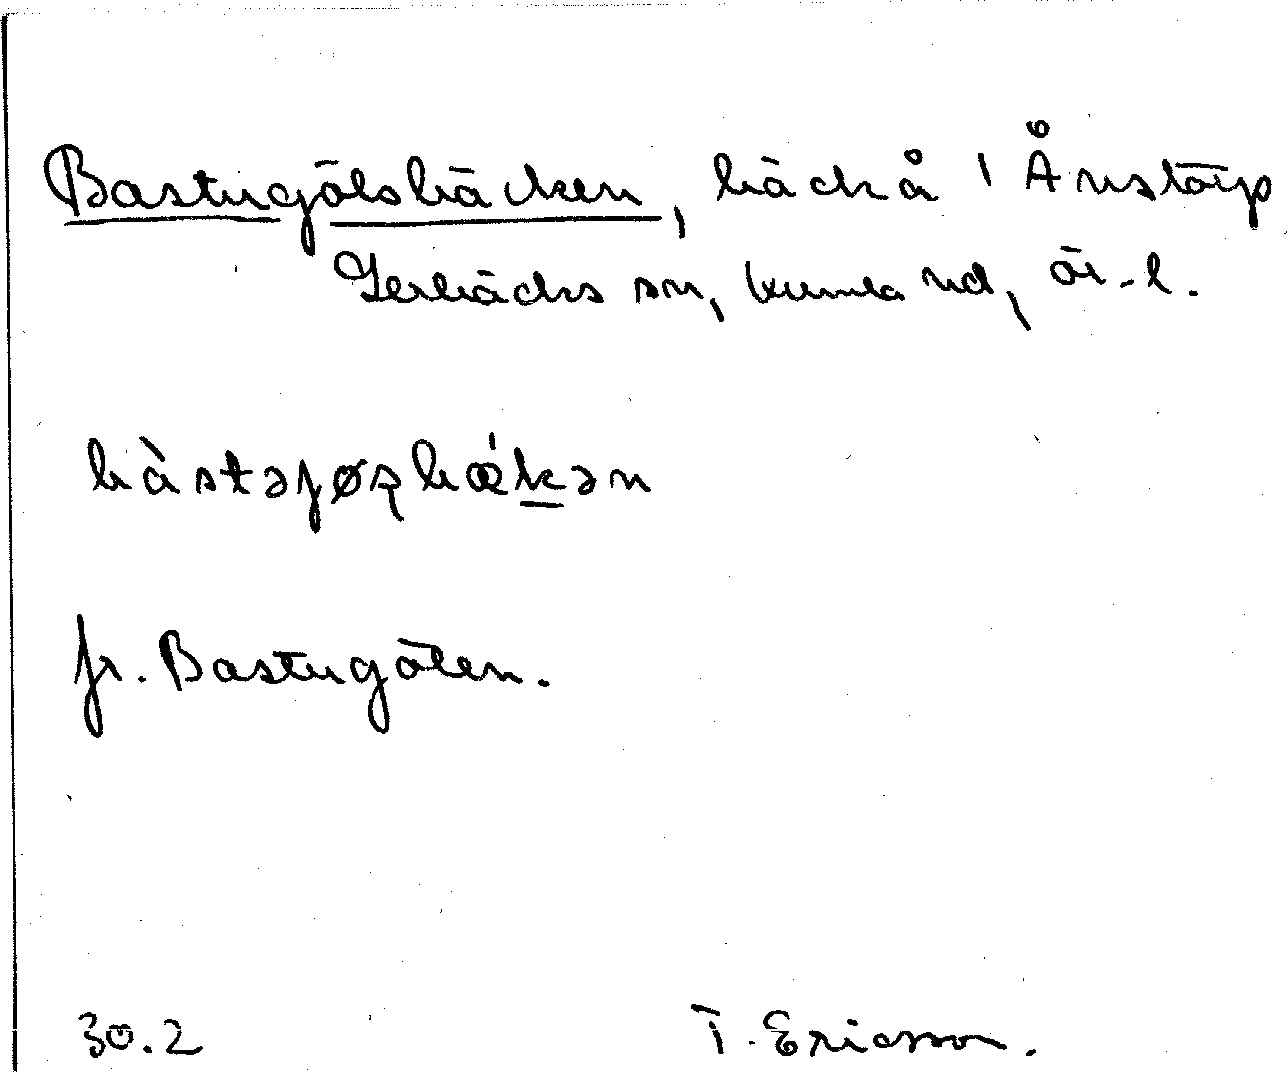 Bastugölsbäcken, bäck å i Ånstorp
Lerbäcks sn, Kumla hd, ör-l.
bàstəjøʂbǽkən
fr. Bastugölen.
30.2 T. Ericsson.